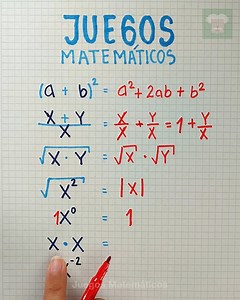 JUEGOS
MATEMÁTICOS
(a + b)² = a² + 2ab + b²
X + Y / X = X/X + Y/X = 1 + Y/X
√X · Y = √X · √Y
√X² = |X|
1X⁰ = 1
X · X =
x⁻²
Juegos Matemáticos